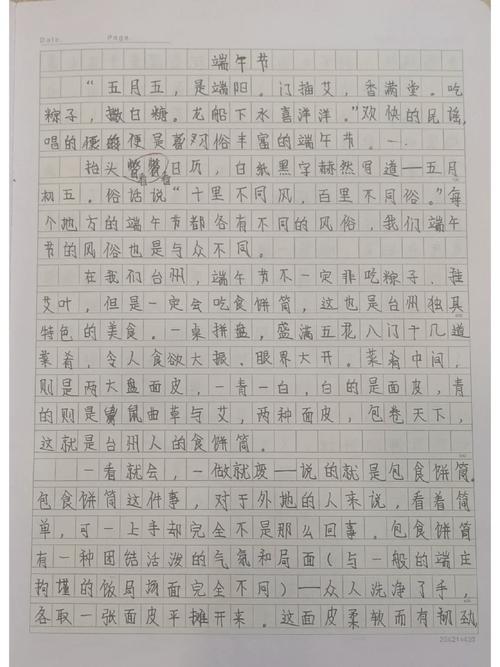 Date. Page.
端午节
“五月五，是端阳。门插艾，香满堂。吃
粽子，撒白糖。龙船下水喜洋洋。”欢快的民谣，
唱的便是习俗丰富的端午节。
抬头看看日历，白纸黑字赫然写道——五月
初五。俗话说“十里不同风，百里不同俗。”每
个地方的端午节都各有不同的风俗，我们端午
节的风俗也是与众不同。
在我们台州，端午节不一定非吃粽子、挂
艾叶，但是一定会吃食饼筒，这也是台州独具
特色的美食。一桌拼盘，盛满五花八门十几道
菜肴，令人食欲大振、眼界大开。菜肴中间，
则是两大盘面皮，一青一白，白的是面皮，青
的则是鼠曲草与艾，两种面皮，包卷天下，
这就是台州人的食饼筒。
一看就会，一做就废——说的就是包食饼筒。
包食饼筒这件事，对于外地的人来说，看着简
单，可一上手却完全不是那么回事。包食饼筒
有一种团结活泼的气氛和局面（与一般的端庄
拘谨的饭局场面完全不同）——众人洗净了手，
各取一张面皮平摊开来。这面皮柔软而有韧劲